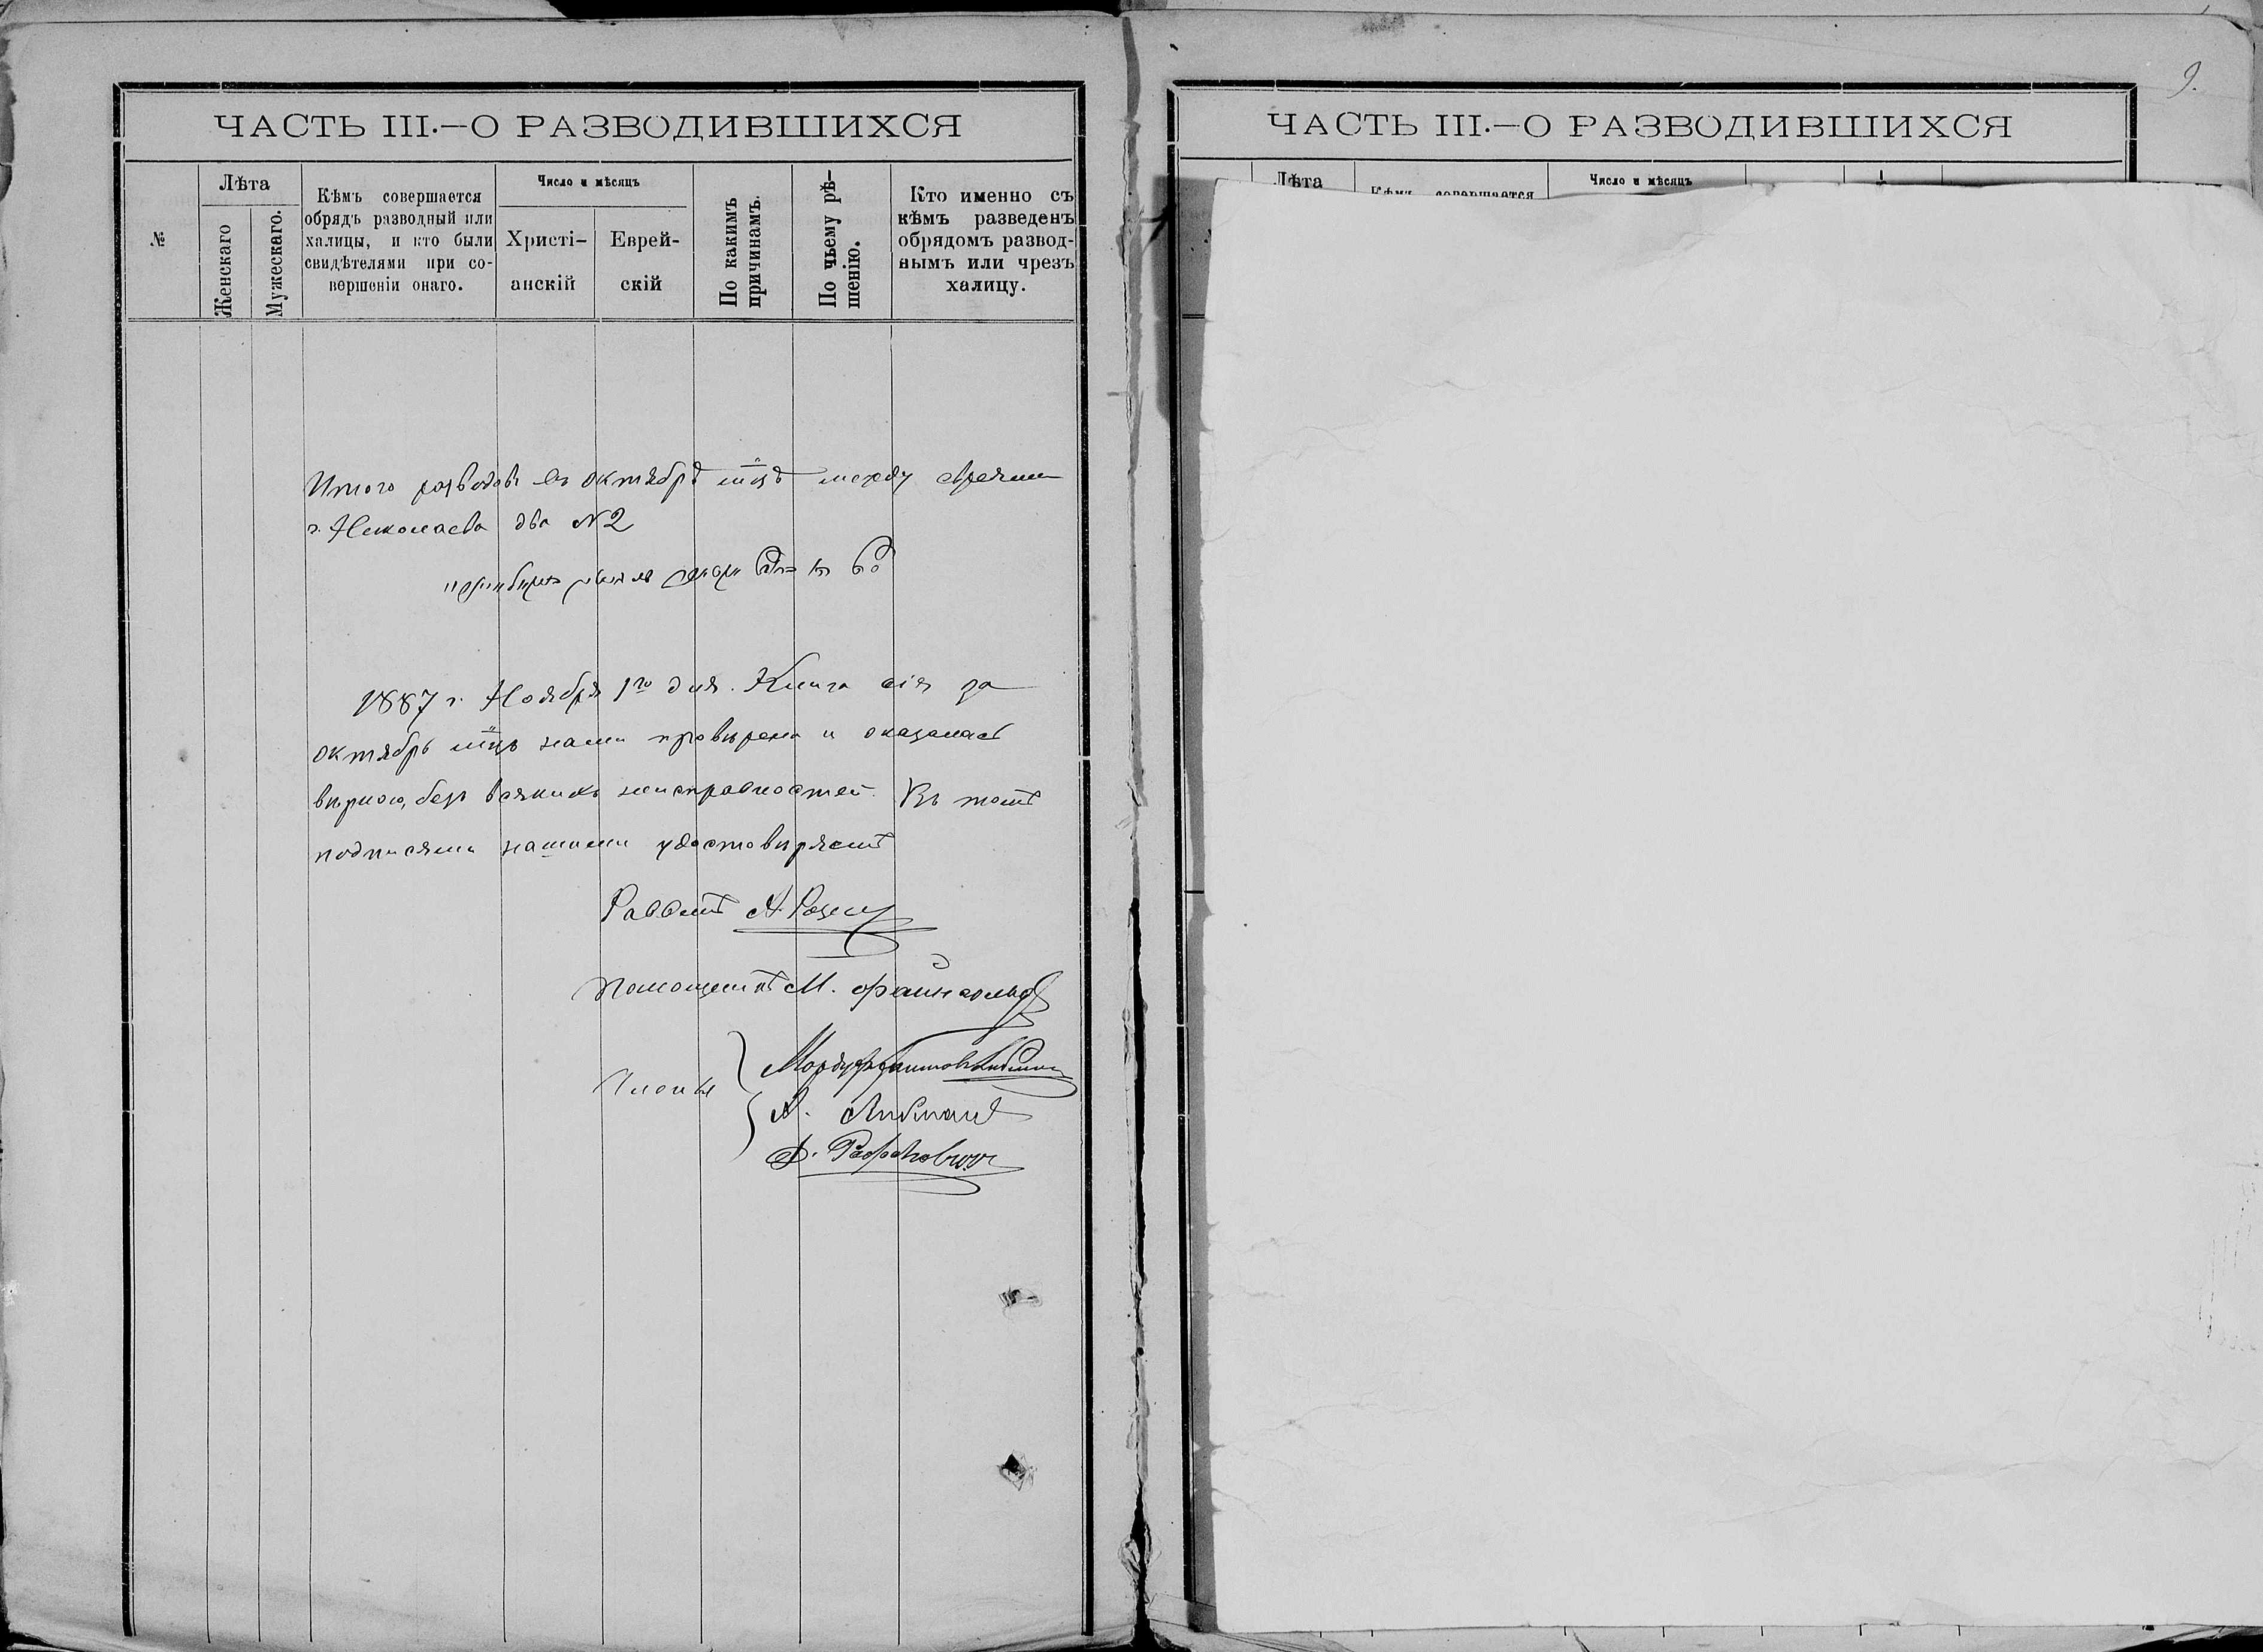 ЧАСТЬ III.—О РАЗВОДИВШИХСЯ
№
Лѣта
Женскаго
Мужескаго.
Кѣмъ совершается
обрядъ разводный или
халицы, и кто были
свидѣтелями при со-
вершеніи онаго.
Число и мѣсяцъ
Христі-
анскій
Еврей-
скій
По какимъ
причинамъ.
По чьему рѣ-
шенію.
Кто именно съ
кѣмъ разведенъ
обрядомъ развод-
нымъ или чрезъ
халицу.
Итого разводовъ въ октябрѣ мцѣ между евреями
г. Николаева два №2
1887 г. Ноября 1го дня. Книга сія за
октябрь мцъ нами провѣрена и оказалась
вѣрною, безъ всякихъ неисправностей. Въ томъ
подписями нашими удостовѣряемъ
Раввинъ
Помощникъ М. Файнгольд
Члены
А. Либманъ
9.
ЧАСТЬ III.—О РАЗВОДИВШИХСЯ
Лѣта
Кѣмъ совершается
Число и мѣсяцъ